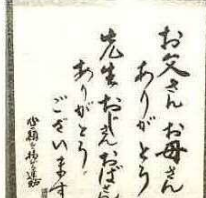 お父さん お母さん
ありがとう
先生 おじさん おばさん
ありがとう
ございます